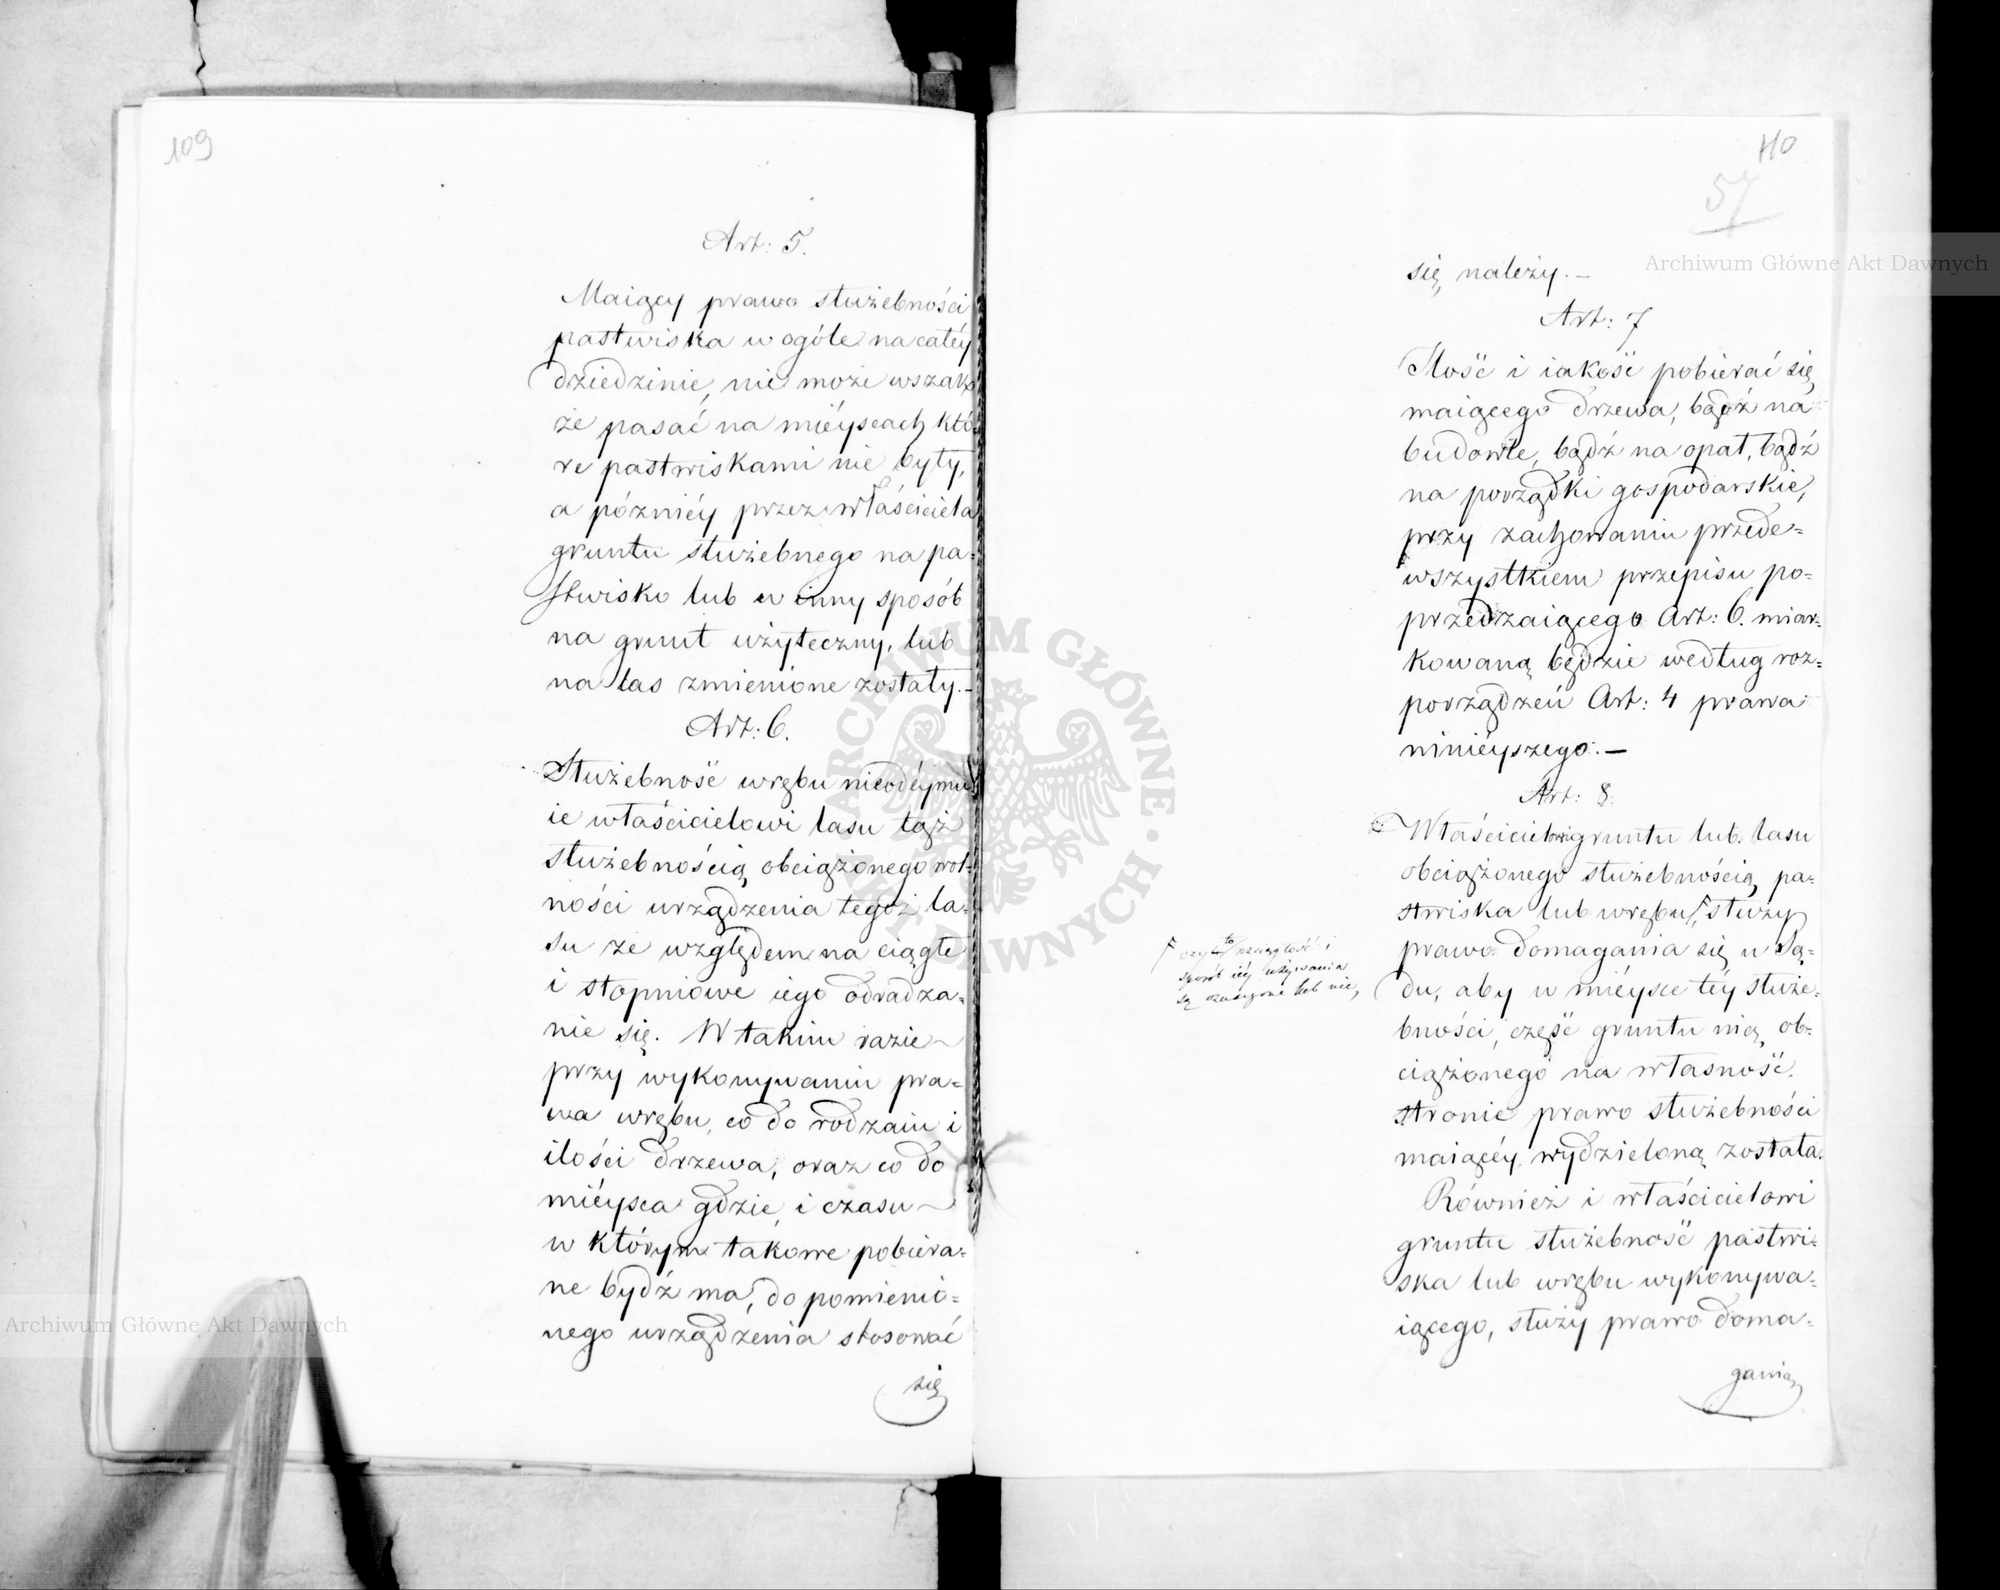 109
Art: 5.
Maiący prawo służebności
pastwiska w ogóle na całéy
dziedzinie, nie może wszak
że pasać na miéyscach któ
re pastwiskami nie były,
a pózniéy przez właściciela
gruntu służebnego na pa=
stwisko lub w inny sposób
na grunt użyteczny, lub
na las zmienione zostały.–
Art: 6.
Służebność wrębu nieodéymu
ie właścicielowi lasu tąż
służebnością obciążonego wol=
ności urządzenia tegoż la=
su ze względem na ciągłe
i stopniowe iego odradza=
nie się. W takim razie
przy wykonywaniu pra=
wa wrębu, co do rodzaiu i
ilości drzewa, oraz co do
miéysca gdzie, i czasu
w którym takowe pobiera=
ne bydź ma, do pomienio=
nego urządzenia stosować
się
110
57
się należy.–
Art: 7
Ilość i iakość pobierać się
maiącego drzewa, bądź na
budowle, bądź na opał, bądź
na porządki gospodarskie,
przy zachowaniu przede=
wszystkiem przepisu po=
przedzaiącego Art: 6. miar=
kowaną będzie według roz=
porządzeń Art: 4 prawa
ninieyszego.–
Art: 8.
Właścicielowi gruntu lub lasu
obciążonego służebnością pa=
stwiska lub wrębu, służy
prawo domagania się u Są=
du, aby w miéysce téy służe=
bności, część gruntu nią ob=
ciążonego na własność
stronie prawo służebności
maiącéy wydzieloną została.
Również i właścicielowi
gruntu służebność pastwi=
ska lub wrębu wykonywa=
iącego, służy prawo doma=
gania
czyli to rozciągłość i
sposób iéy używania
są oznaczone lub nie,
Archiwum Główne Akt Dawnych
Archiwum Główne Akt Dawnych
ARCHIWUM GŁÓWNE AKT DAWNYCH